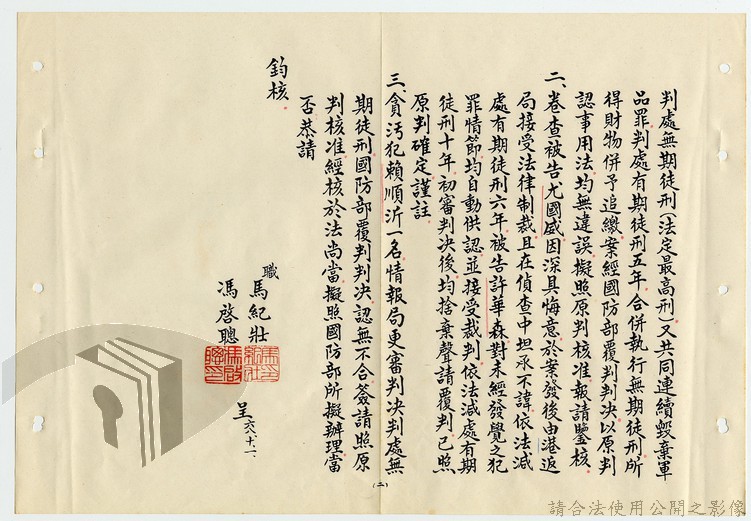 判處無期徒刑(法定最高刑)又共同連續毀棄軍
品罪判處有期徒刑五年合併執行無期徒刑所
得財物併予追繳案經國防部覆判判決以原判
認事用法均無違誤擬照原判核准報請鑒核
二、卷查被告尤國威因深具悔意於案發後由港返
局接受法律制裁且在偵查中坦承不諱依法減
處有期徒刑六年被告許華森對未經發覺之犯
罪情節均自動供認並接受裁判依法減處有期
徒刑十年初審判決後均捨棄聲請覆判已照
原判確定謹註
三、貪污犯賴順沂一名情報局更審判決判處無
期徒刑國防部覆判判決認無不合簽請照原
判核准經核於法尚當擬照國防部所擬辦理當
否恭請
鈞核
職馬紀壯
馮啓聰
呈六八、十、一、
(二)
請合法使用公開之影像